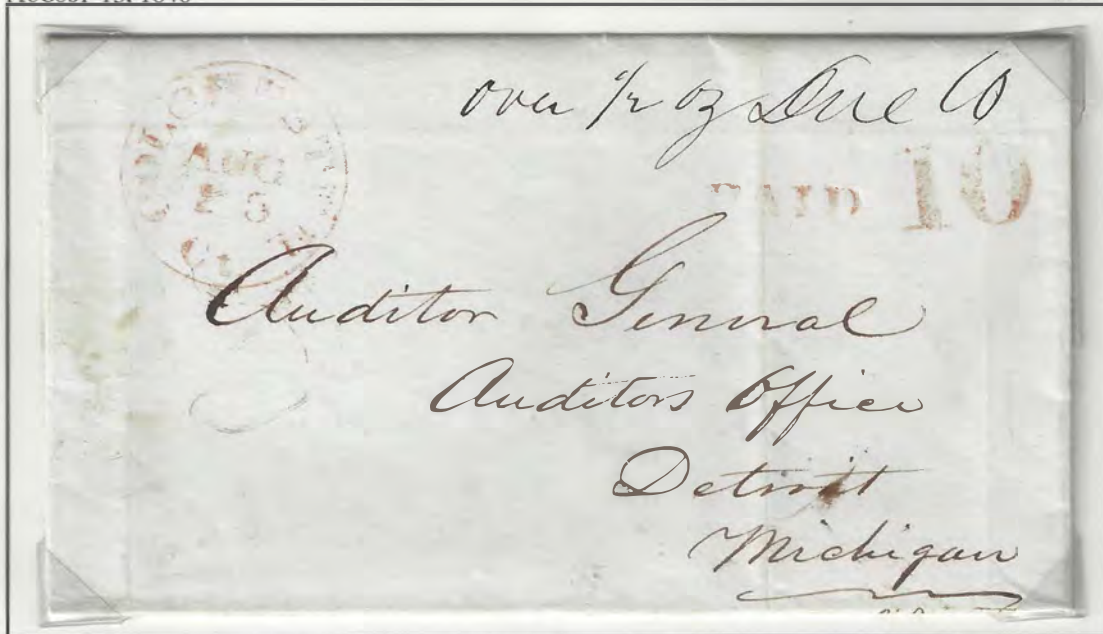 over 1/2 oz Due 10
AUG
PAID 10
Auditor General
Auditors Office
Detroit
Michigan